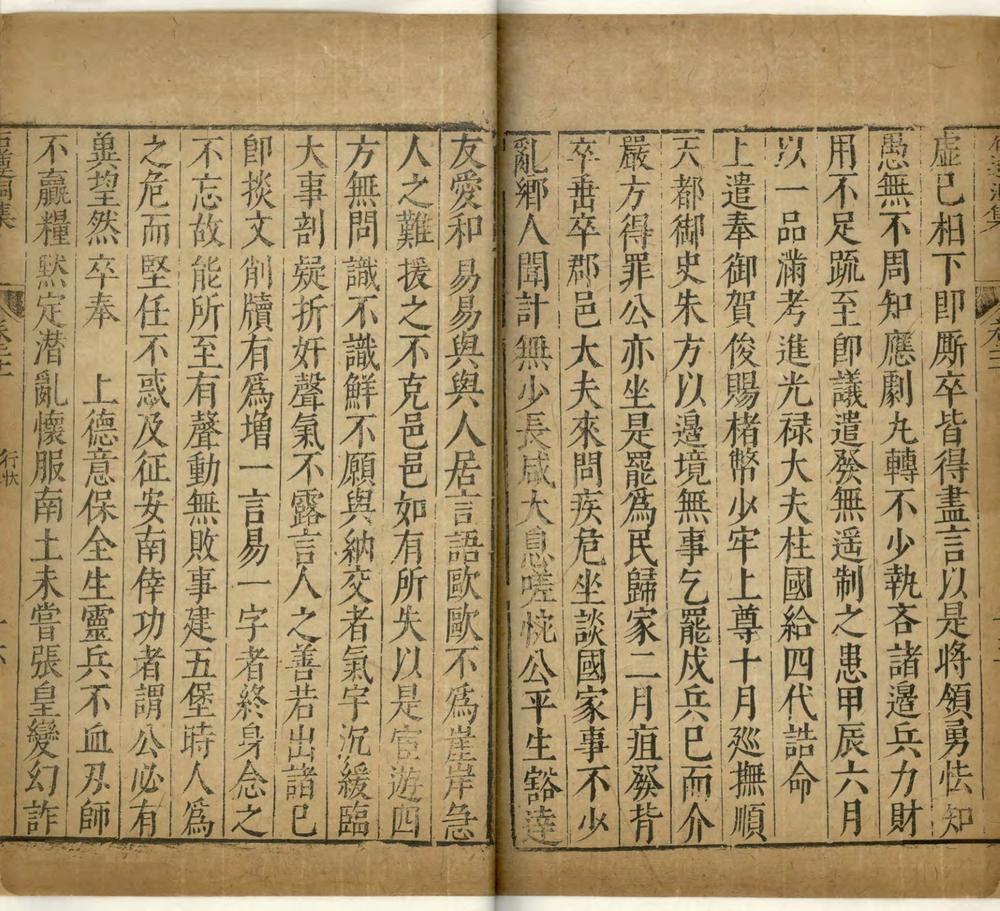 虛已相下卽厮卒皆得盡言以是將領勇怯知
愚無不周知應劇九轉不少執吝諸邉兵力財
用不足䟽至卽議遣發無遥制之患甲辰六月
以一品滿考進光禄大夫柱國給四代誥命
上遣奉御賀俊賜楮幣少牢上尊十月廵撫順
天都御史朱方以邉境無事乞罷戍兵已而介
嚴方得罪公亦坐是罷爲民歸家二月疽發背
卒垂卒郡邑大夫來問疾危坐談國家事不少
亂鄉人聞訃無少長咸大息嗟忱公平生豁逹
友愛和易易與與人居言語歐歐不爲崖岸急
人之難援之不克邑邑如有所失以是宦遊四
方無問識不識鮮不願與納交者氣宇沉緩臨
大事剖疑折奸聲氣不露言人之善若出諸已
卽掞文削牘有爲増一言易一字者終身念之
不忘故能所至有聲動無敗事建五堡時人爲
之危而堅任不惑及征安南倖功者謂公必有
異望然卒奉　上德意保全生靈兵不血刃師
不贏糧黙定潜亂懷服南土未嘗張皇變幻詐
行狀